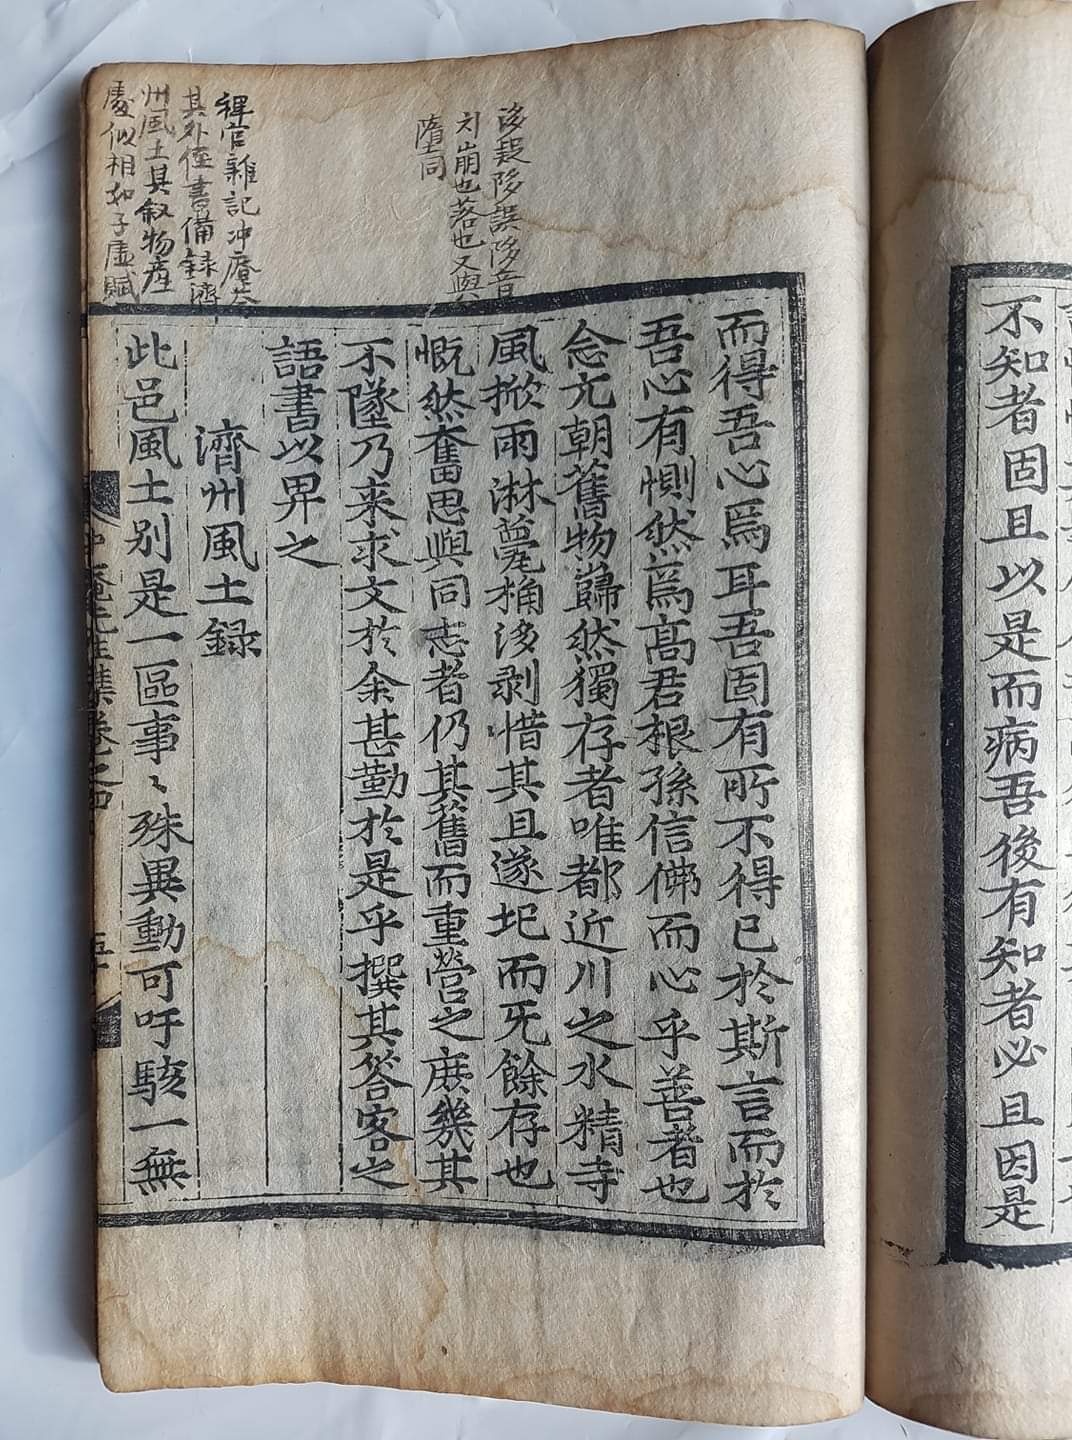 不知者固且以是而病吾後有知者必且因是
而得吾心焉耳吾固有所不得已於斯言而於
吾心有惻然焉高君根孫信佛而心乎善者也
念元朝舊物巋然獨存者唯都近川之水精寺
風掀雨淋甍桷涊剥惜其且遂圮而旡餘存也
慨然奮思與同志者仍其舊而重營之庶幾其
不墜乃来求文於余甚勤於是乎撰其答客之
語書以畀之
濟州風土録
此邑風土别是一區事〻殊異動可吁駭一無
冲庵先生集卷之四
五十
誤陊音
又與
隋同
稗官雜記冲庵在
其外侄書備録濟
州風土其叙物産
處似相如子虛賦